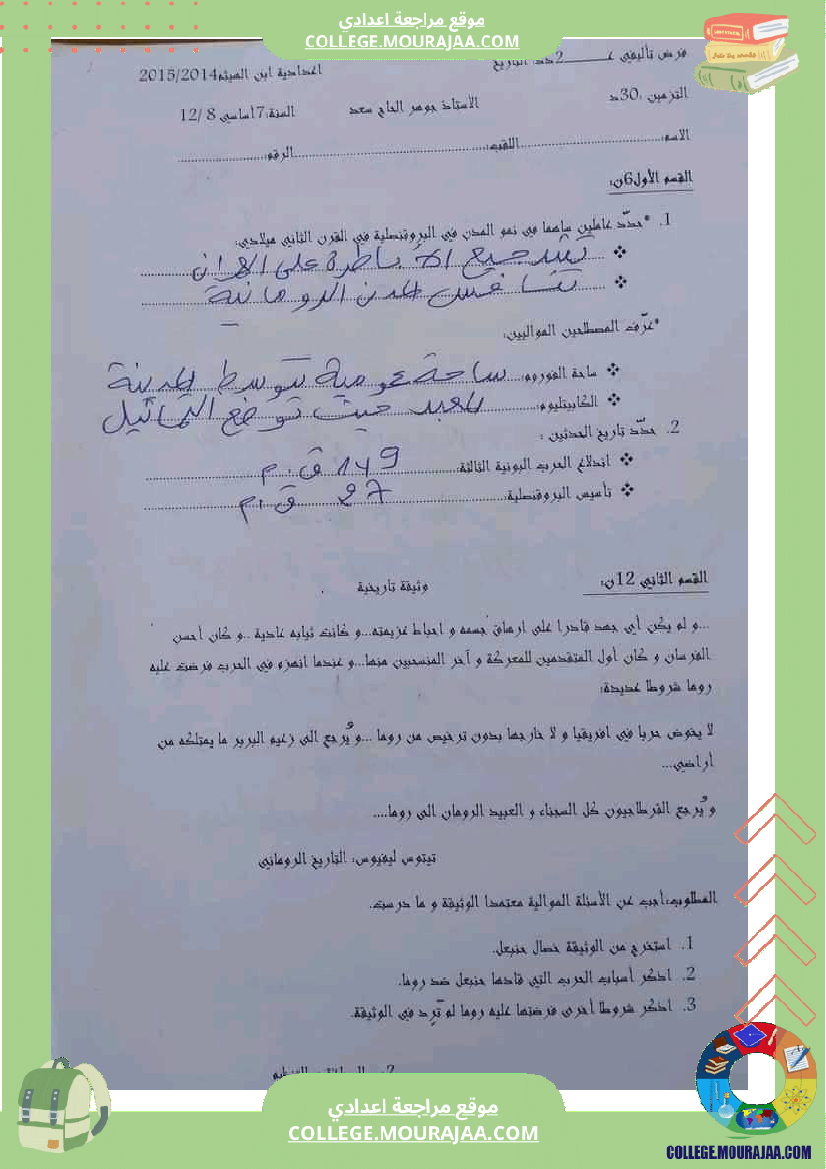 موقع مراجعة اعدادي
COLLEGE.MOURAJAA.COM
فرض تأليفي عـــــــ2ـدد التاريخ
اعدادية ابن الهيثم2015/2014
التزمين :30د
الأستاذ جوهر الحاج سعد
السنة:7أساسي 8 /12
الاسم:.........اللقب:.........الرقم:.........
القسم الأول6ن:
1. *حدّد عاملين ساهما في نمو المدن في البروقنصلية في القرن الثاني ميلادي:
❖ تشجيع الأباطرة على العمران
❖ تنافس المدن الرومانية
*عرّف المصطلحين المواليين:
❖ ساحة الفوروم: ساحة عمومية تتوسط المدينة
❖ الكابيتليوم: المعبد حيث توضع التماثيل
2. حدّد تاريخ الحدثين :
❖ اندلاع الحرب البونية الثالثة: 149 ق.م
❖ تأسيس البروقنصلية: 27 ق.م
القسم الثاني 12ن:
وثيقة تاريخية
...و لم يكن أي جهد قادرا على ارهاق جسمه و احباط عزيمته...و كانت ثيابه عادية ..و كان أحسن
الفرسان و كان أول المتقدمين للمعركة و آخر المنسحبين منها...و عندما انهزم في الحرب فرضت عليه
روما شروطا عديدة:
لا يخوض حربا في افريقيا و لا خارجها بدون ترخيص من روما ...و يُرجع الى زعيم البربر ما يمتلكه من
أراضي...
و يُرجع القرطاجيون كل السجناء و العبيد الرومان الى روما....
تيتوس ليفيوس: التاريخ الروماني
المطلوب:أجب عن الأسئلة الموالية معتمدا الوثيقة و ما درست.
1. استخرج من الوثيقة خصال حنبعل.
2. اذكر أسباب الحرب التي قادها حنبعل ضد روما.
3. اذكر شروطا أخرى فرضتها عليه روما لم تَرِد في الوثيقة.
موقع مراجعة اعدادي
COLLEGE.MOURAJAA.COM
COLLEGE.MOURAJAA.COM